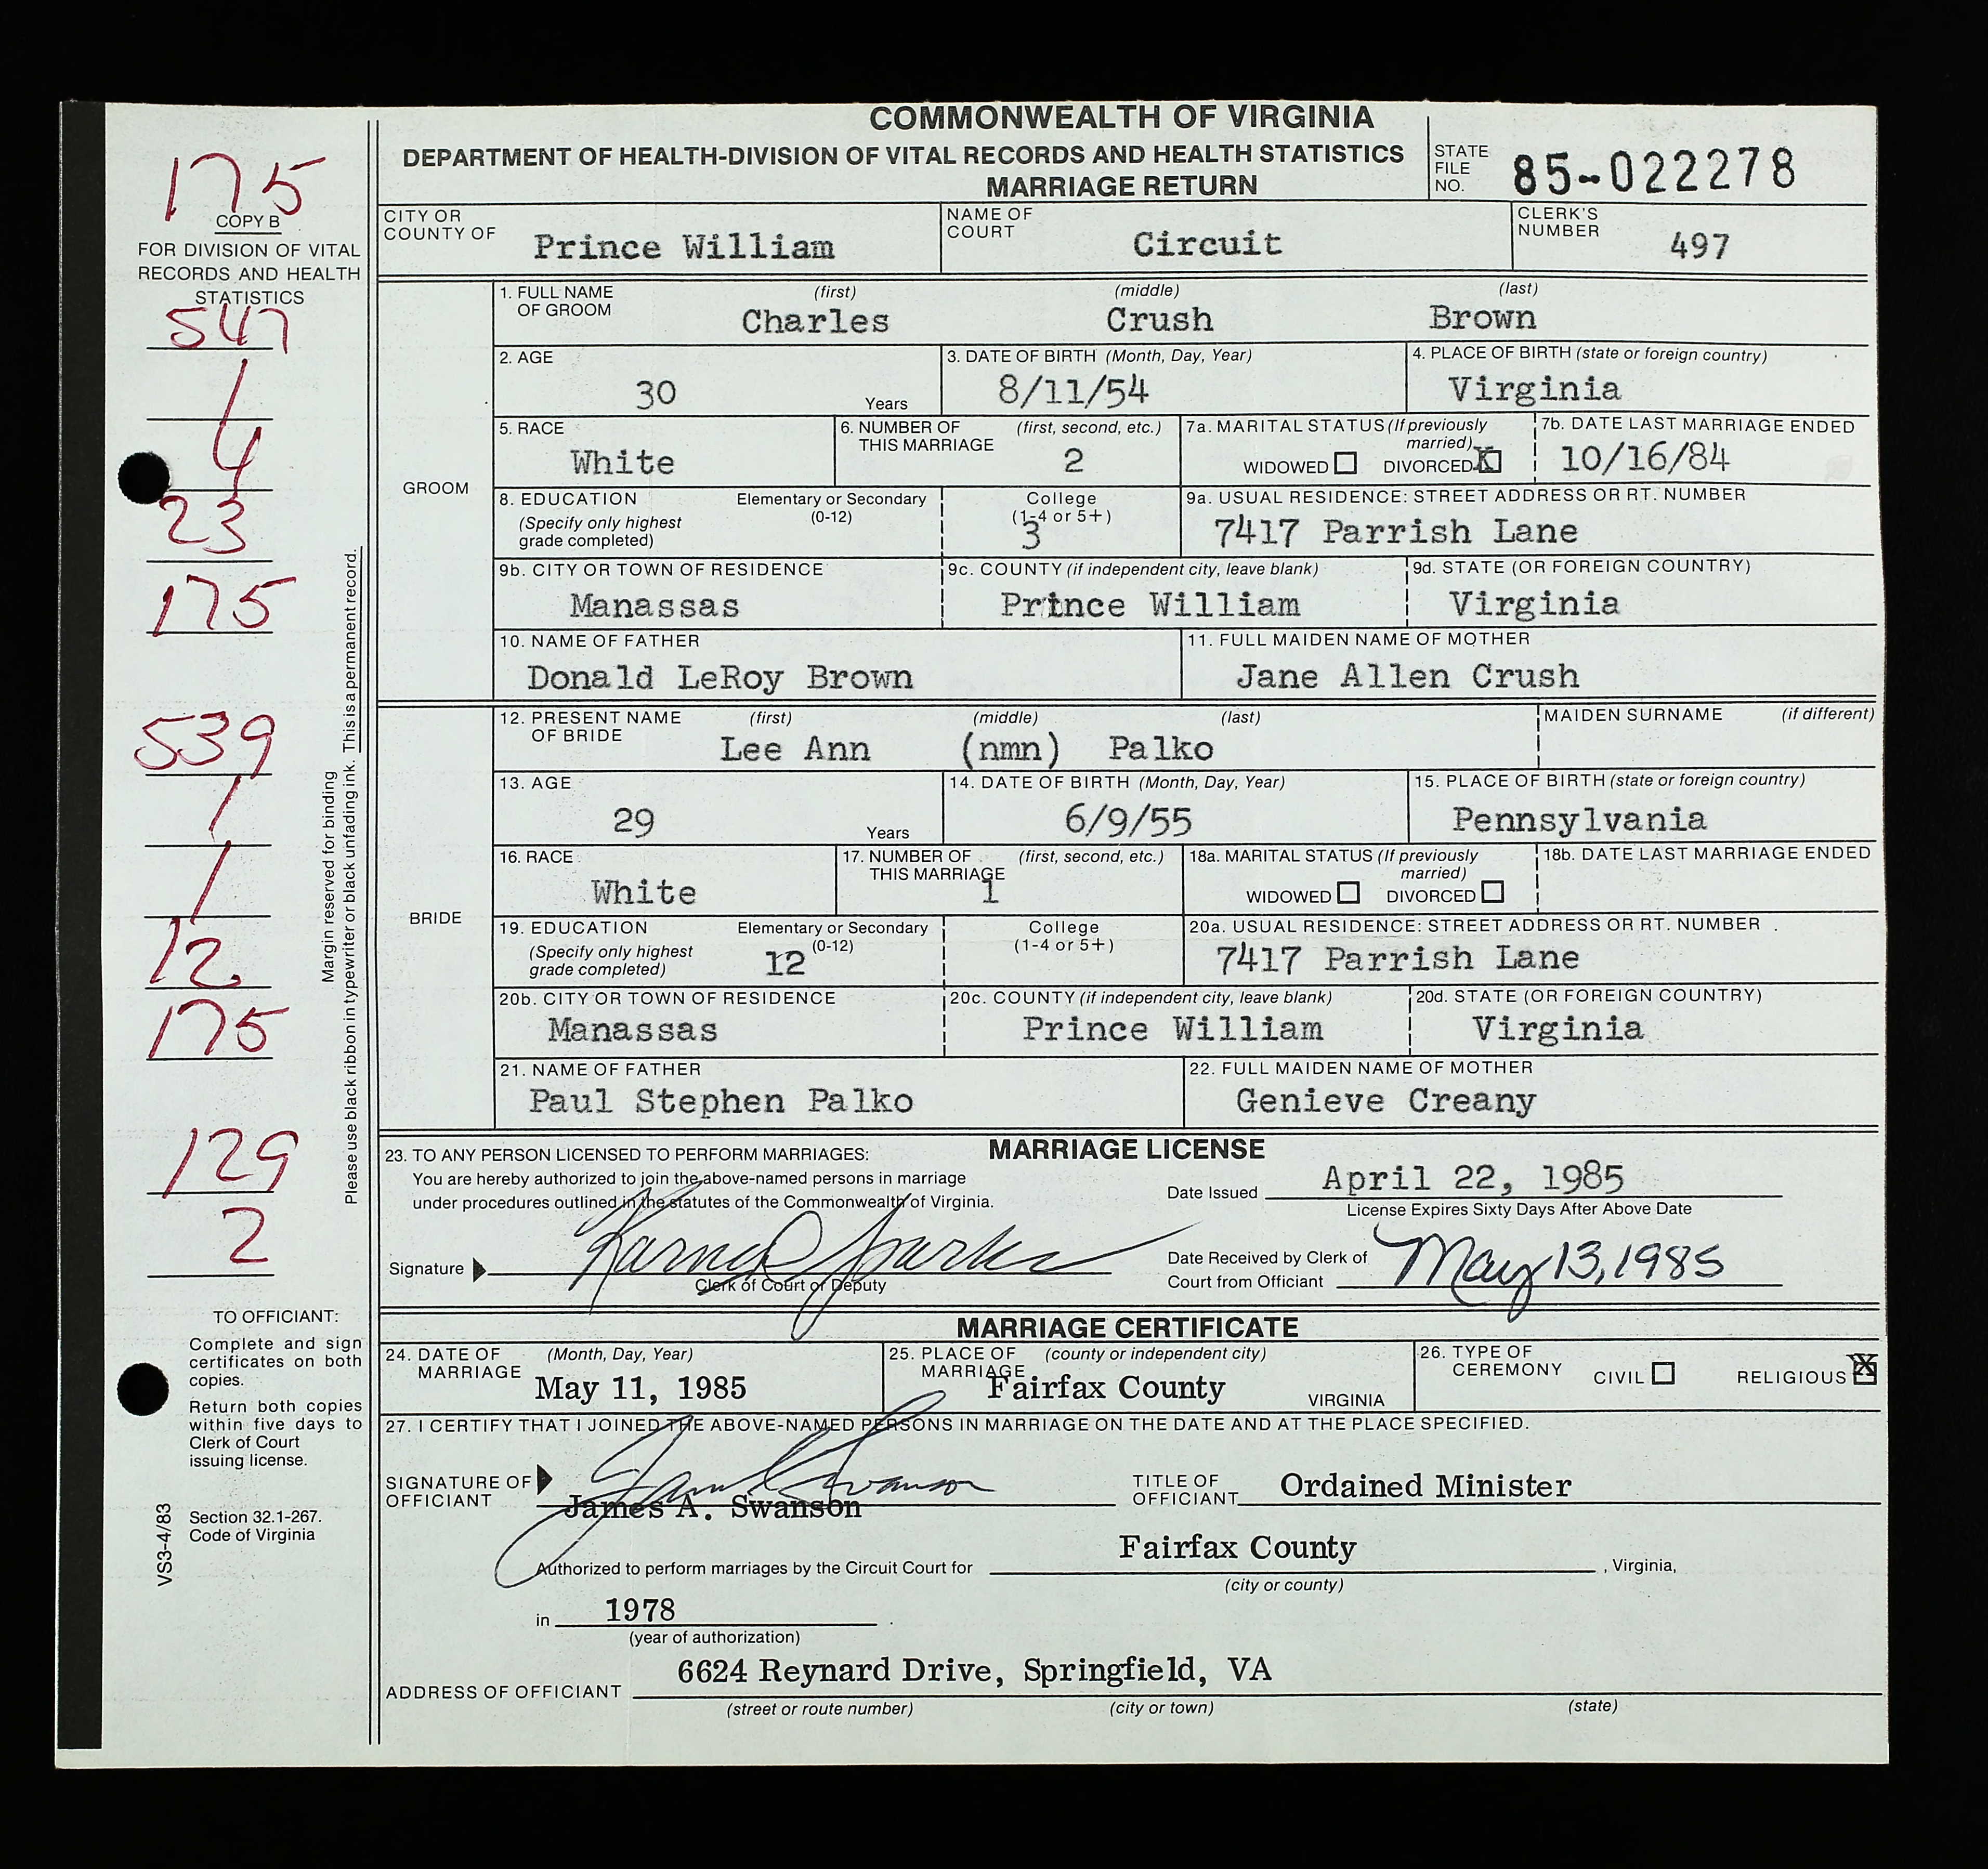 COMMONWEALTH OF VIRGINIA
DEPARTMENT OF HEALTH-DIVISION OF VITAL RECORDS AND HEALTH STATISTICS
MARRIAGE RETURN
STATE FILE NO. 85-022278
175
COPY B
FOR DIVISION OF VITAL
RECORDS AND HEALTH
STATISTICS
547
1
4
23
175
539
1
1
12
175
129
2
Margin reserved for binding
Please use black ribbon in typewriter or black unfading ink. This is a permanent record.
TO OFFICIANT:
Complete and sign
certificates on both
copies.
Return both copies
within five days to
Clerk of Court
issuing license.
Section 32.1-267.
Code of Virginia
VS3-4/83
CITY OR COUNTY OF Prince William
NAME OF COURT Circuit
CLERK'S NUMBER 497
GROOM
1. FULL NAME OF GROOM (first) (middle) (last)
Charles Crush Brown
2. AGE 30 Years
3. DATE OF BIRTH (Month, Day, Year) 8/11/54
4. PLACE OF BIRTH (state or foreign country) Virginia
5. RACE White
6. NUMBER OF THIS MARRIAGE (first, second, etc.) 2
7a. MARITAL STATUS (If previously married) WIDOWED DIVORCED X
7b. DATE LAST MARRIAGE ENDED 10/16/84
8. EDUCATION (Specify only highest grade completed) Elementary or Secondary (0-12) College (1-4 or 5+) 3
9a. USUAL RESIDENCE: STREET ADDRESS OR RT. NUMBER 7417 Parrish Lane
9b. CITY OR TOWN OF RESIDENCE Manassas
9c. COUNTY (if independent city, leave blank) Prince William
9d. STATE (OR FOREIGN COUNTRY) Virginia
10. NAME OF FATHER Donald LeRoy Brown
11. FULL MAIDEN NAME OF MOTHER Jane Allen Crush
BRIDE
12. PRESENT NAME OF BRIDE (first) (middle) (last)
Lee Ann (nmn) Palko
MAIDEN SURNAME (if different)
13. AGE 29 Years
14. DATE OF BIRTH (Month, Day, Year) 6/9/55
15. PLACE OF BIRTH (state or foreign country) Pennsylvania
16. RACE White
17. NUMBER OF THIS MARRIAGE (first, second, etc.) 1
18a. MARITAL STATUS (If previously married) WIDOWED DIVORCED
18b. DATE LAST MARRIAGE ENDED
19. EDUCATION (Specify only highest grade completed) Elementary or Secondary (0-12) 12 College (1-4 or 5+)
20a. USUAL RESIDENCE: STREET ADDRESS OR RT. NUMBER 7417 Parrish Lane
20b. CITY OR TOWN OF RESIDENCE Manassas
20c. COUNTY (if independent city, leave blank) Prince William
20d. STATE (OR FOREIGN COUNTRY) Virginia
21. NAME OF FATHER Paul Stephen Palko
22. FULL MAIDEN NAME OF MOTHER Genieve Creany
MARRIAGE LICENSE
23. TO ANY PERSON LICENSED TO PERFORM MARRIAGES:
You are hereby authorized to join the above-named persons in marriage
under procedures outlined in the statutes of the Commonwealth of Virginia.
Date Issued April 22, 1985
License Expires Sixty Days After Above Date
Signature Sparks
Clerk of Court or Deputy
Date Received by Clerk of Court from Officiant May 13, 1985
MARRIAGE CERTIFICATE
24. DATE OF MARRIAGE (Month, Day, Year) May 11, 1985
25. PLACE OF MARRIAGE (county or independent city) Fairfax County VIRGINIA
26. TYPE OF CEREMONY CIVIL RELIGIOUS X
27. I CERTIFY THAT I JOINED THE ABOVE-NAMED PERSONS IN MARRIAGE ON THE DATE AND AT THE PLACE SPECIFIED.
SIGNATURE OF OFFICIANT James A. Swanson
James A. Swanson
TITLE OF OFFICIANT Ordained Minister
Authorized to perform marriages by the Circuit Court for Fairfax County, Virginia,
(city or county)
in 1978.
(year of authorization)
ADDRESS OF OFFICIANT 6624 Reynard Drive, Springfield, VA
(street or route number) (city or town) (state)